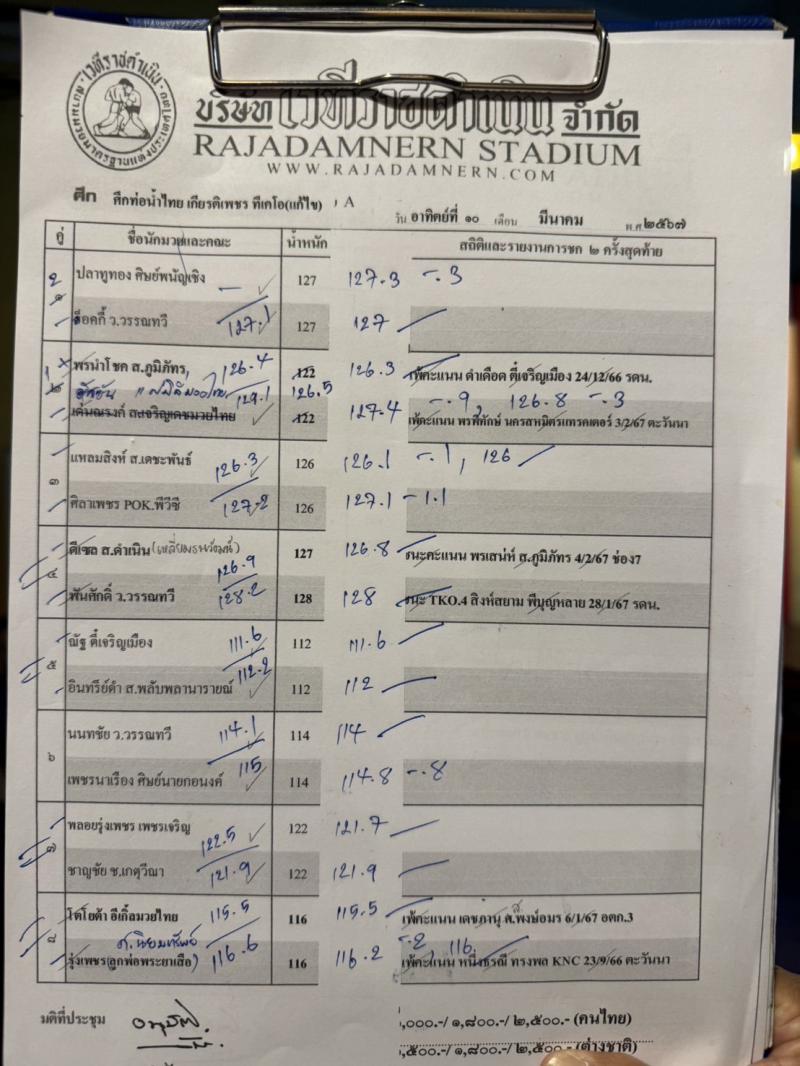 เวทีราชดำเนิน
บริษัท เวทีราชดำเนิน จำกัด
RAJADAMNERN STADIUM
WWW.RAJADAMNERN.COM
ศึก ศึกท่อน้ำไทย เกียรติเพชร ทีเคโอ(แก้ไข) A
วัน อาทิตย์ที่ ๑๐ เดือน มีนาคม พ.ศ ๒๕๖๗
คู่ ชื่อนักมวยและคณะ น้ำหนัก สถิติและรายงานการชก ๒ ครั้งสุดท้าย
ปลาทูทอง ศิษย์พนัญเชิง 127 127.3 -.3
ร็อคกี้ ว.วรรณทวี 127.1 127 127
พรนำโชค ส.ภูมิภัทร 126.4 122 126.3 แพ้คะแนน ดำเดือด ตี๋เจริญเมือง 24/12/66 รดน.
129.1 126.5
เด่นณรงค์ ส.เจริญเดชมวยไทย 122 127.4 -.9, 126.8 -.3 แพ้คะแนน พรพิทักษ์ นครสหมิตรแทรคเตอร์ 3/2/67 ตะวันนา
๓ แหลมสิงห์ ส.เดชะพันธ์ 126.3 126 126.1 -.1, 126
ศิลาเพชร POK.พีวีซี 127.2 126 127.1 -1.1
๔ ดีเซล ส.ดำเนิน 126.9 127 126.8 ชนะคะแนน พรเสน่ห์ ส.ภูมิภัทร 4/2/67 ช่อง7
พันศักดิ์ ว.วรรณทวี 128.2 128 128 ชนะ TKO.4 สิงห์สยาม พีบุญหลาย 28/1/67 รดน.
๕ ณัฐ ตี๋เจริญเมือง 111.6 112 111.6
อินทรีย์ดำ ส.พลับพลานารายณ์ 112.2 112 112
๖ นนทชัย ว.วรรณทวี 114.1 114 114
เพชรนาเรือง ศิษย์นายกอนงค์ 115 114 114.8 -.8
๗ พลอยรุ่งเพชร เพชรเจริญ 122.5 122 121.7
ชาญชัย ช.เกตุวีณา 121.9 122 121.9
๘ โตโยต้า อีเกิ้ลมวยไทย 115.5 116 115.5 แพ้คะแนน เดชภานุ ส.พงษ์อมร 6/1/67 อตก.3
รุ่งเพชร(ลูกพ่อพระยาเสือ) 116.6 116 116.2 -.2 116 แพ้คะแนน หนึ่งธรณี ทรงพล KNC 23/9/66 ตะวันนา
มติที่ประชุม ,๐๐๐.-/ ๑,๘๐๐.-/ ๒,๕๐๐.- (คนไทย)
,๕๐๐.-/ ๑,๘๐๐.-/ ๒,๕๐๐.- (ต่างชาติ)